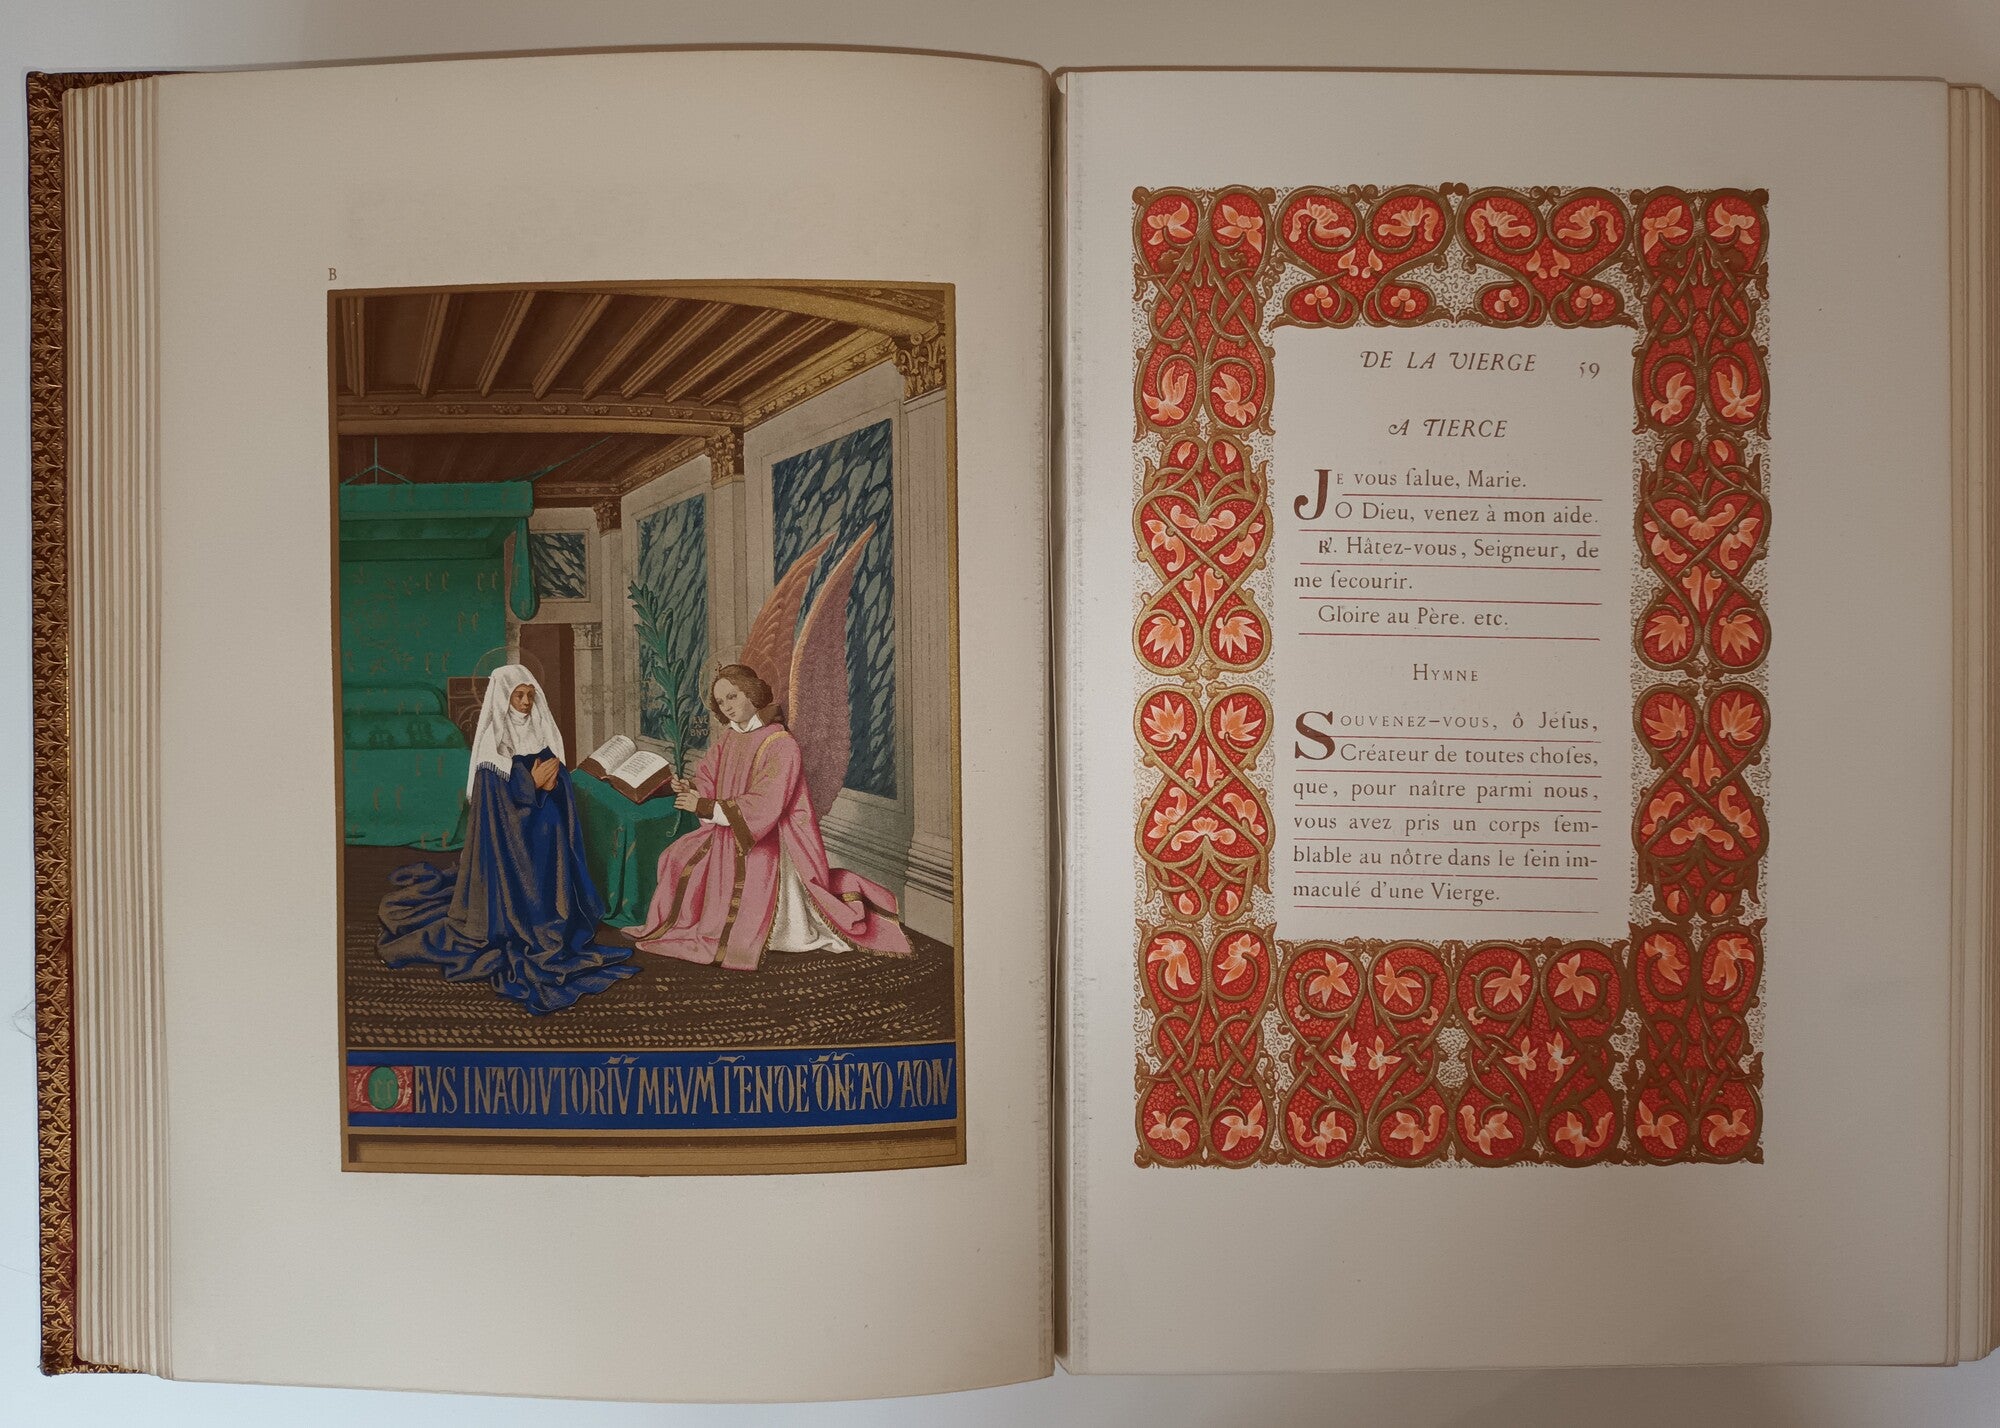 B
EVS INADIVTORIV̄ MEVM ĪTENDE OM̄E AD ADIV
DE LA VIERGE 59
A TIERCE
JE vous ſalue, Marie.
O Dieu, venez à mon aide.
℟. Hâtez-vous, Seigneur, de
me ſecourir.
Gloire au Père. etc.
HYMNE
SOUVENEZ-VOUS, ô Jéſus,
Créateur de toutes choſes,
que, pour naître parmi nous,
vous avez pris un corps ſem-
blable au nôtre dans le ſein im-
maculé d'une Vierge.